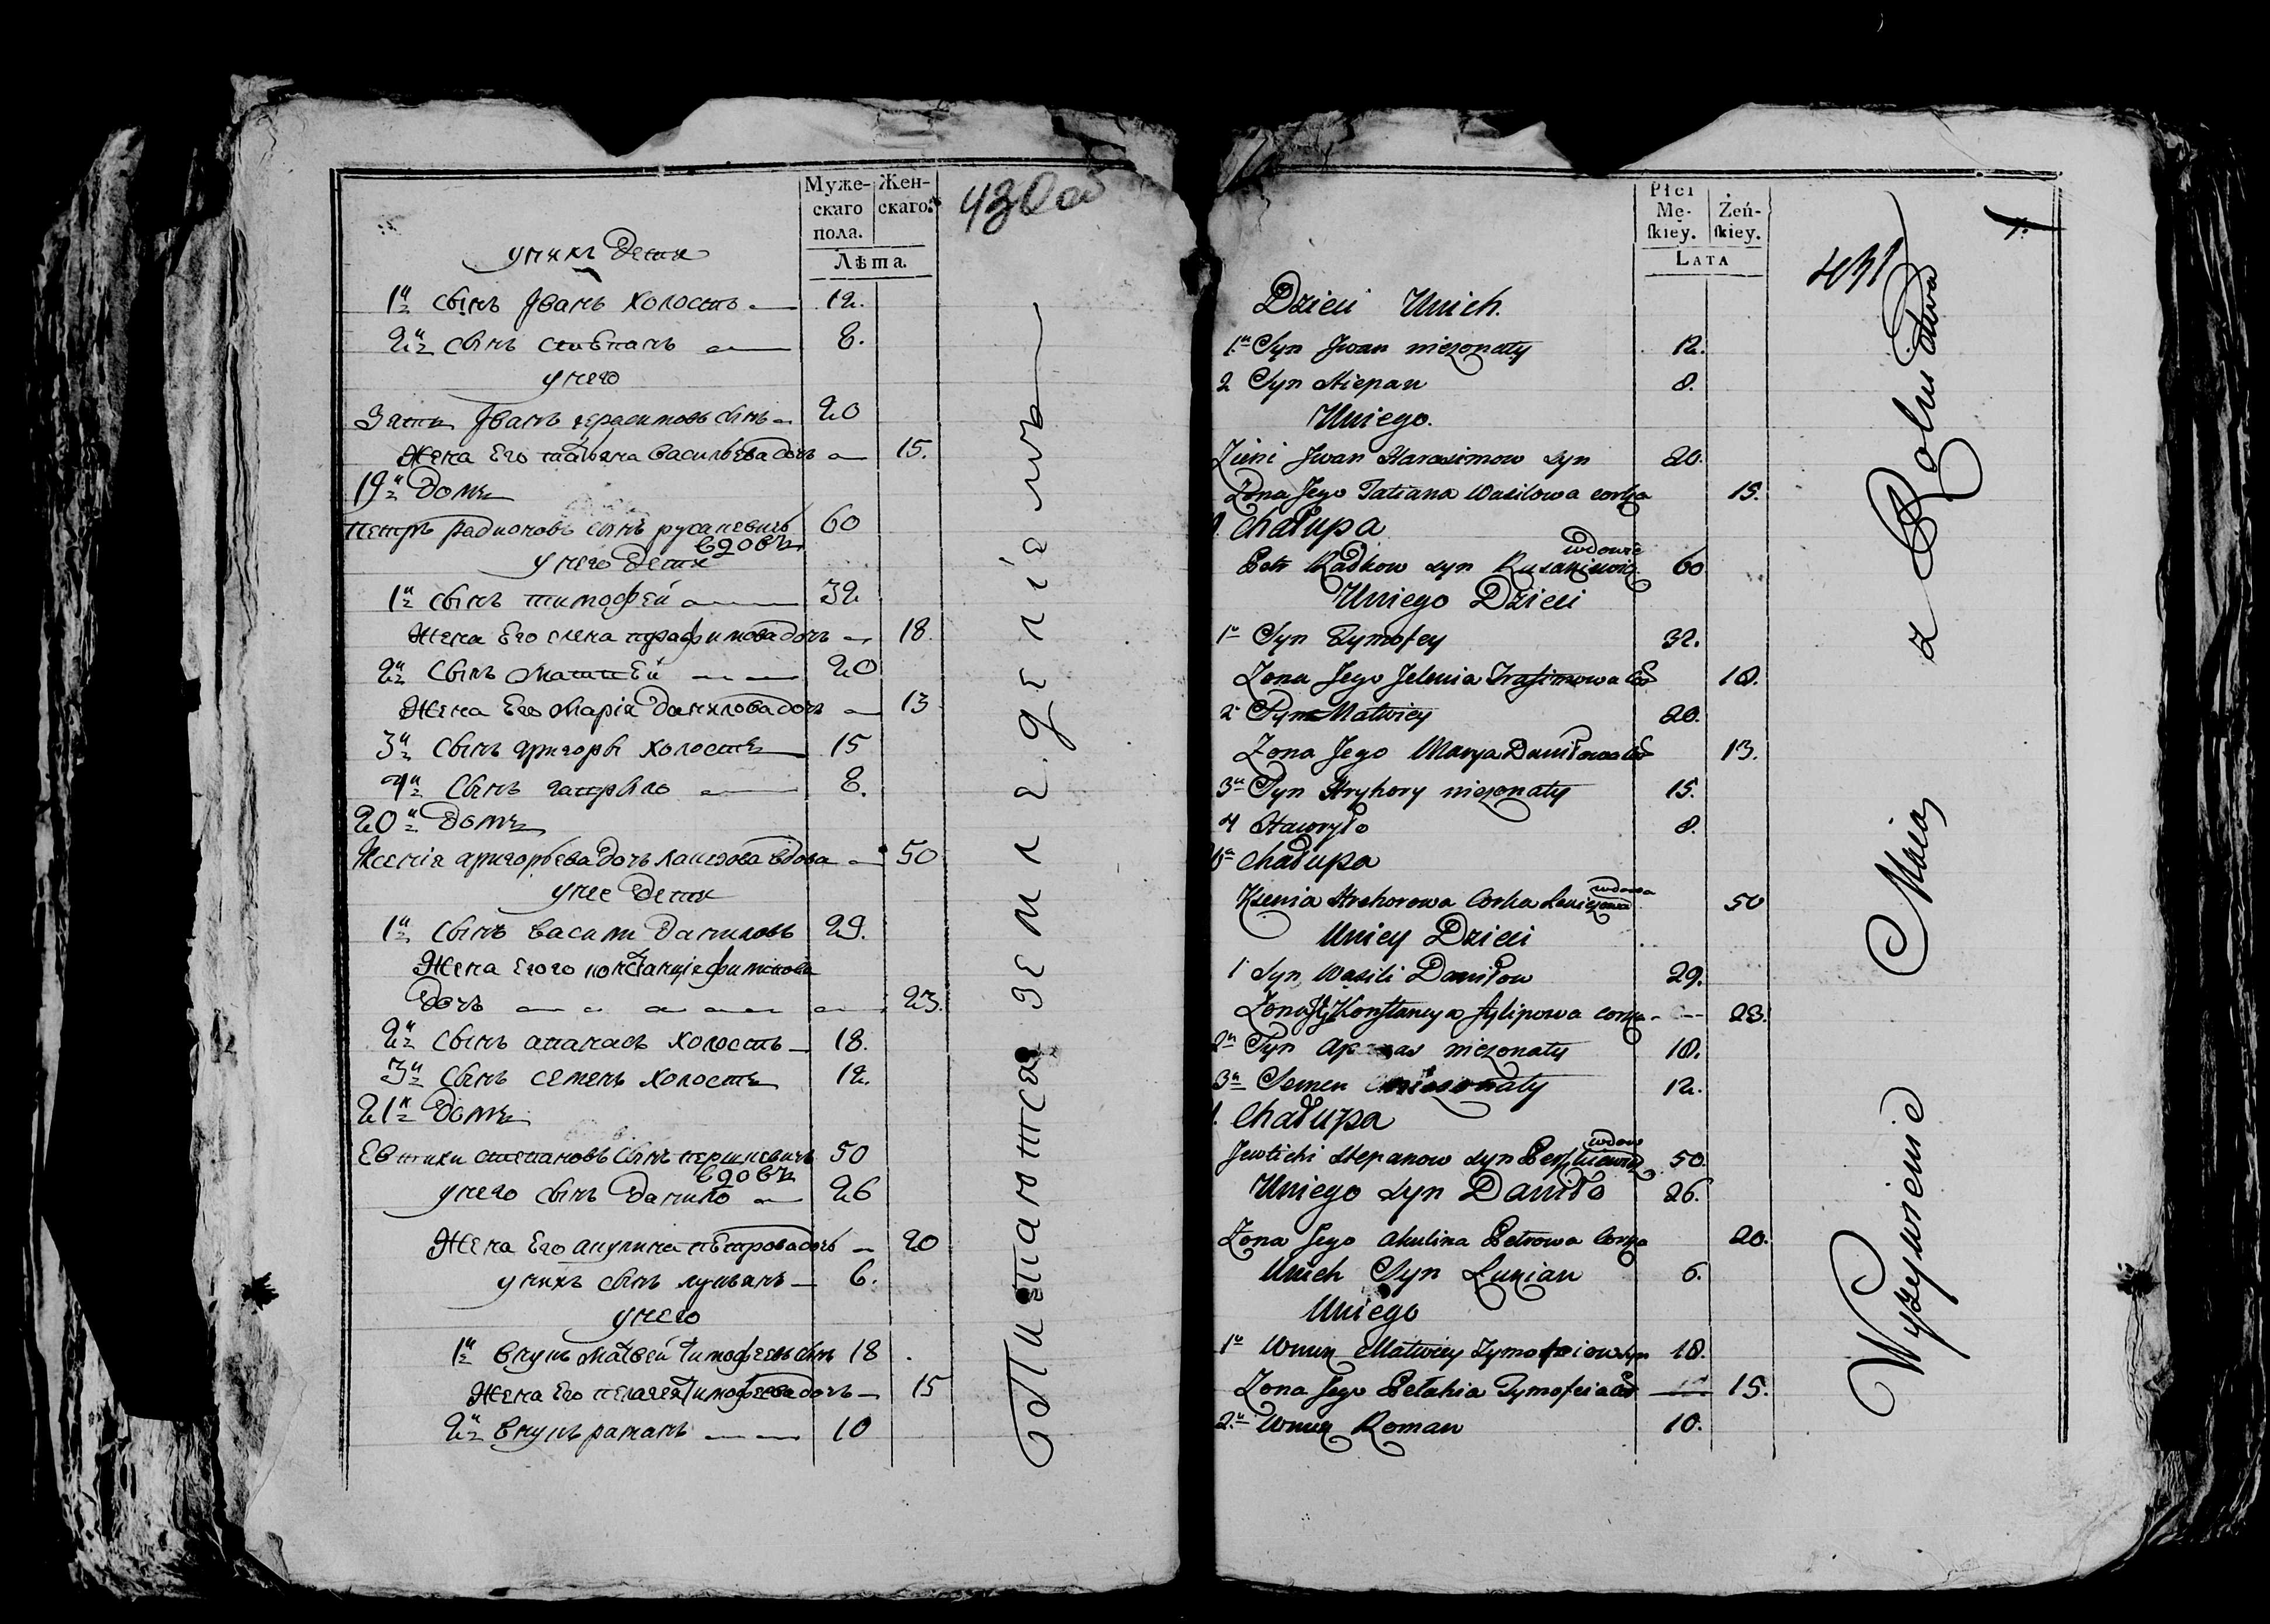 Муже-
скаго
пола.
Жен-
скаго.
Лѣта.
430
у нихъ дети
1й сынъ Іванъ холостъ 12.
2й сынъ степанъ 8.
у него
Зять Іванъ герасимовъ сынъ 20
Жена Его татьяна васильева дочь 15.
19й домъ
петръ радионовъ сынъ русаневичь 60
вдовъ
у него дети
1й сынъ тимофей 32
Жена Его елена трафимова дочь 18.
2й сынъ матвей 20
Жена Его марія данилова дочь 13
3й сынъ григорьі холостъ 15
4й сынъ гаврыло 8.
20й домъ
Ксенія григорьева дочь вдова 50
у нее дети
1й сынъ васили даниловъ 29.
Жена Его констанція
дочь 23.
2й сынъ апанасъ холостъ 18.
3й сынъ семенъ холостъ 12.
21й домъ
Евтихи степановъ сынъ 50
вдовъ
у него сынъ данило 26
Жена Его акулина пѣтрова дочь 20
у нихъ сынъ лукьянъ 6.
у него
1й внукъ матвей тимофеевъ сынъ 18
Жена Его пелагея тимофеева дочь 15
2й внукъ раманъ 10
питаются земледеліемъ
Płci
Mę-
skiey.
Żeń-
skiey.
LATA
431
Dzieci Unich.
1n Syn Jwan niezonaty 12.
2 Syn Stiepan 8.
Uniego.
Zieni Jwan Harasimow syn 20.
Zona Jego Tatiana Wasilowa corka 15.
Chałupa
wdowie
Petr Radkow syn Rusakiewicz 60
Uniego Dzieci
1n Syn Tymofey 32.
Zona Jego Jelenia Trafimowa 18.
2 Syn Matwiey 20.
Zona Jego Marya Daniłowa 13.
3n Syn Hryhory niezonaty 15.
4 Hawryło 8.
Chałupa
wdowa
Ksenia Hrehorowa Corka 50
Uniey Dzieci
1 Syn Wasili Daniłow 29.
Zona Jego Konstancya Fylipowa corka 23.
2n Syn Apanas niezonaty 18.
3n Semen niezonaty 12.
Chałupa
wdow
Jewtichi Stepanow syn 50.
Uniego syn Daniło 26.
Zona Jego Akulina Petrowa Corka 20.
Unich Syn Lukian 6.
Uniego
1n Wnuk Matwiey Tymofeiow syn 18.
Zona Jego Pełahia Tymofeia 15.
2n Wnuk Roman 10.
Wyzywienie Maią z Roli